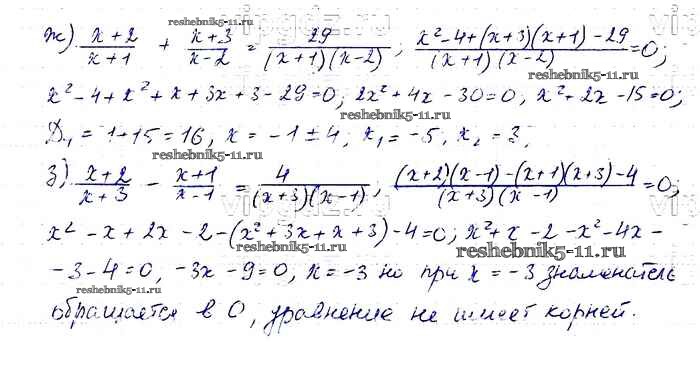 ж) (x+2)/(x+1) + (x+3)/(x-2) = 29/((x+1)(x-2)); (x²-4+(x+3)(x+1)-29)/((x+1)(x-2)) = 0;
x²-4+x²+x+3x+3-29=0; 2x²+4x-30=0; x²+2x-15=0;
D₁=1+15=16, x=-1±4, x₁=-5, x₂=3.
з) (x+2)/(x+3) - (x+1)/(x-1) = 4/((x+3)(x-1)); ((x+2)(x-1)-(x+1)(x+3)-4)/((x+3)(x-1)) = 0;
x²-x+2x-2-(x²+3x+x+3)-4=0; x²+x-2-x²-4x-
-3-4=0, -3x-9=0, x=-3 но при x=-3 знаменатель
обращается в 0, уравнение не имеет корней.
reshebnik5-11.ru
reshebnik5-11.ru
reshebnik5-11.ru
reshebnik5-11.ru
reshebnik5-11.ru
reshebnik5-11.ru
reshebnik5-11.ru